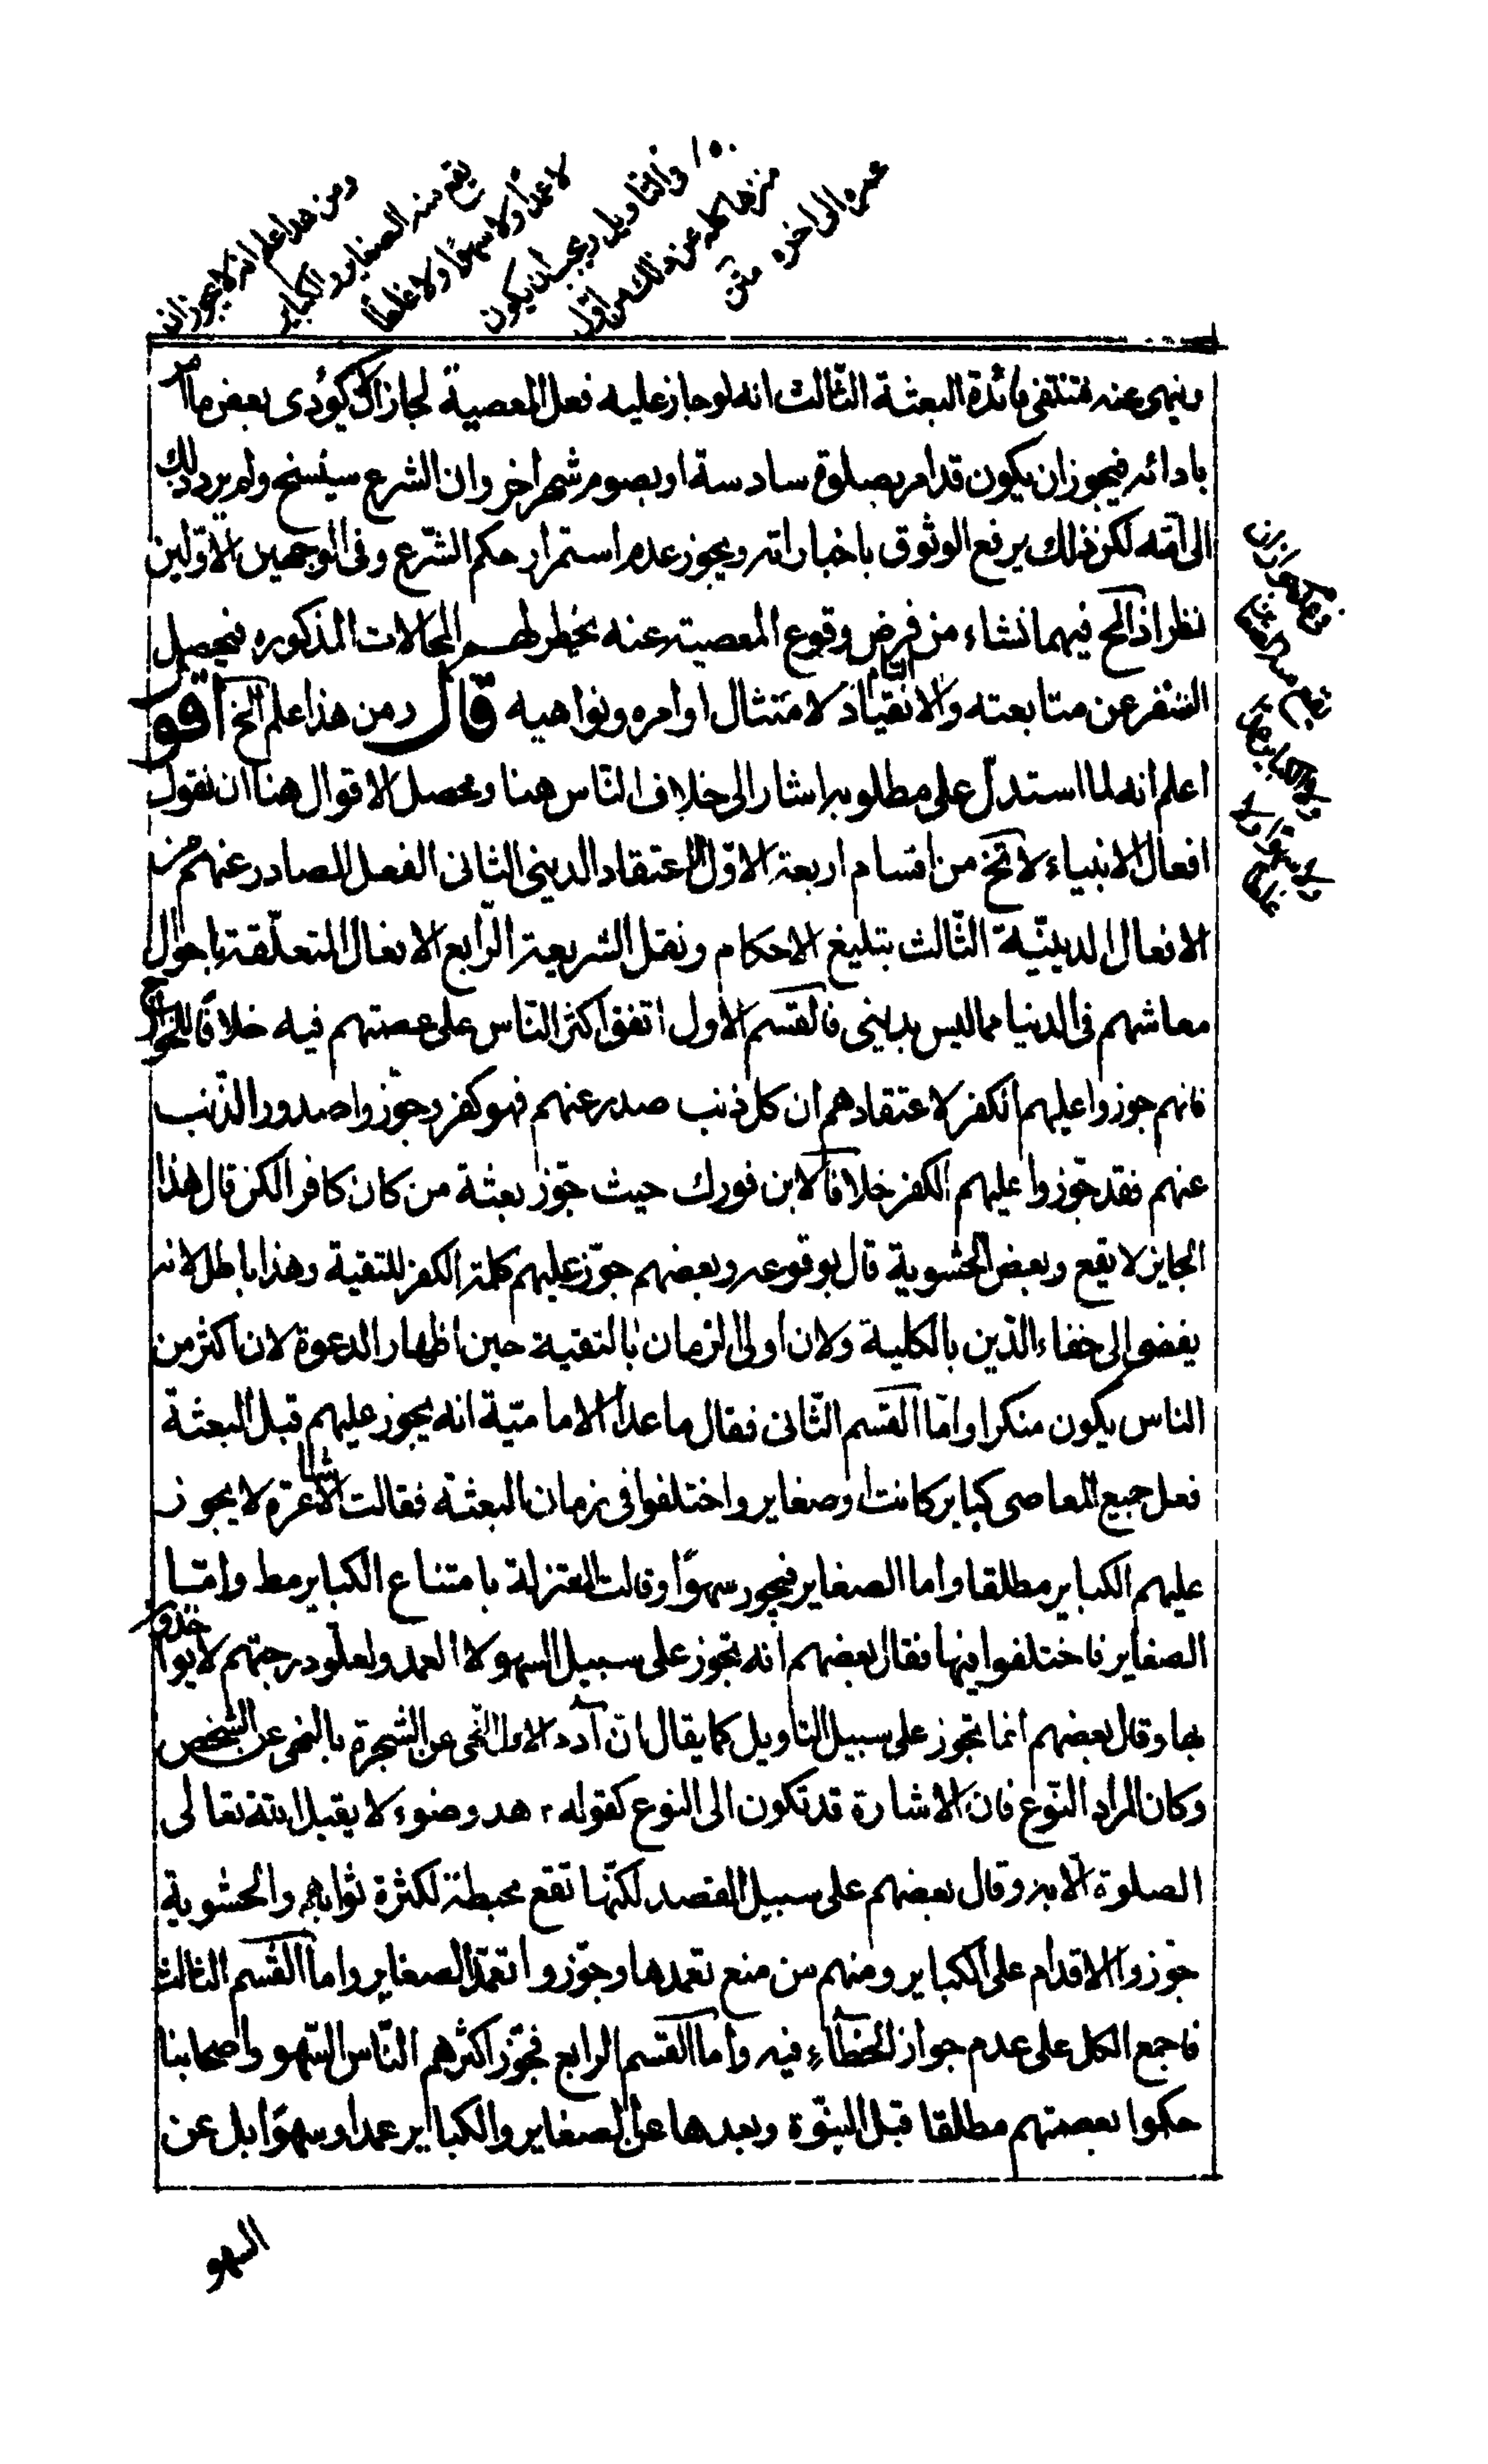 ومن هذا علم انه لا يجوز ان
يقع منه الصغاير والكباير
لا عمدا ولا سهوا ولا غلطا
فى التاويل ويجب ان يكون
منزها عن ذلك كله من اول
عمره الى اخره متن
وينهى عنه فتنتفى فائدة البعثة الثالث انه لو جاز عليه فعل المعصية لجاز ان لا يؤدى بعض ما امر
بادائه فيجوز ان يكون قد امر بصلوة سادسة او بصوم شهر اخر وان الشرع سينسخ ولم يرد ذلك
الى امته لكن ذلك يرفع الوثوق باخباراته ويجوز عدم استمرار حكم الشرع وفى الوجهين الاولين
نظر اذ الح فيهما نشاء من فرض وقوع المعصية عنه يخطر لهم المحالات المذكوره فيحصل
التنفر عن متابعته والانقياد التام لامتثال اوامره ونواهيه قال ومن هذا علم الخ اقو
اعلم انه لما استدل على مطلوبه اشار الى خلاف الناس هنا ومحصل الاقوال هنا ان نقول
افعال الانبياء لا تخ من اقسام اربعة الاول الاعتقاد الدينى الثانى الفعل الصادر عنهم من
الافعال الدينية الثالث تبليغ الاحكام ونقل الشريعة الرابع الافعال المتعلقة باحوال
معاشهم فى الدنيا مما ليس بدينى فالقسم الاول اتفق اكثر الناس على عصمتهم فيه خلافا للخوارج
فانهم جوزوا عليهم الكفر لاعتقادهم ان كل ذنب صدر عنهم فهو كفر وجوزوا صدور الذنب
عنهم فقد جوزوا عليهم الكفر خلافا لابن فورك حيث جوز بعثة من كان كافرا لكن قال هذا
الجايز لا يقع وبعض الحشوية قال بوقوعه وبعضهم جوز عليهم كلمة الكفر للتقية وهذا باطل لانه
يفضى الى خفاء الدين بالكلية ولان اولى الزمان بالتقية حين اظهار الدعوة لان اكثر من
الناس يكون منكرا واما القسم الثانى فقال ما عدا الامامية انه يجوز عليهم قبل البعثة
فعل جميع المعاصى كباير كانت او صغاير واختلفوا فى زمان البعثة فقالت الاشاعره لا يجوز
عليهم الكباير مطلقا واما الصغاير فيجوز سهوا وقالت المعتزلة بامتناع الكباير مط واما
الصغاير فاختلفوا فيها فقال بعضهم انه يجوز على سبيل السهو لا العمد ولعلو درجتهم لا يواخذوا
بها وقال بعضهم انما تجوز على سبيل التاويل كما يقال ان آدم اول النهى عن الشجرة بالنهى عن الشخص
وكان المراد النوع فان الاشارة قد تكون الى النوع كقوله هذ وضوء لا يقبل الله تعالى
الصلوة الا به وقال بعضهم على سبيل القصد لكنها تقع محبطة لكثرة ثوابهم والحشوية
جوزوا الاقدام على الكباير ومنهم من منع تعمدها وجوزوا تعمد الصغاير واما القسم الثالث
فاجمع الكل على عدم جواز الخطاء فيه واما القسم الرابع فجوز اكثرهم الناس السهو واصحابنا
حكموا بعصمتهم مطلقا قبل النبوة وبعدها عن الصغاير والكباير عمدا وسهوا بل عن
السهو